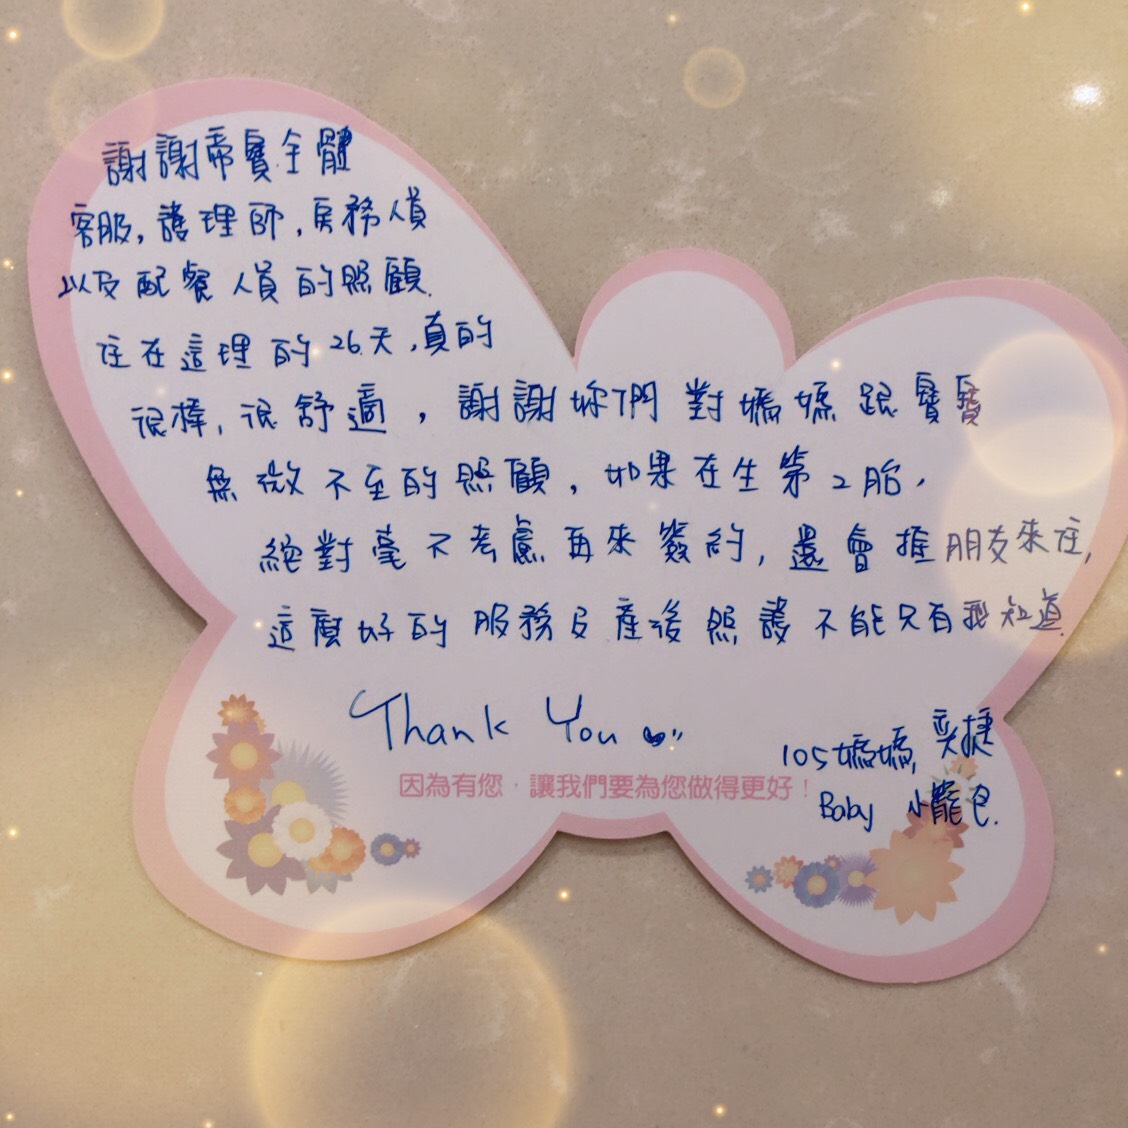 謝謝帝寶全體
客服,護理師,房務人員
以及配餐人員的照顧.
住在這理的26天,真的
很棒,很舒適,謝謝妳們對媽媽跟寶寶
無微不至的照顧,如果在生第2胎,
絕對毫不考慮再來簽約,還會推朋友來住,
這麼好的服務及產後照護不能只有我知道.
Thank You
105媽媽 奕捷
因為有您,讓我們要為您做得更好!
Baby 小籠包.